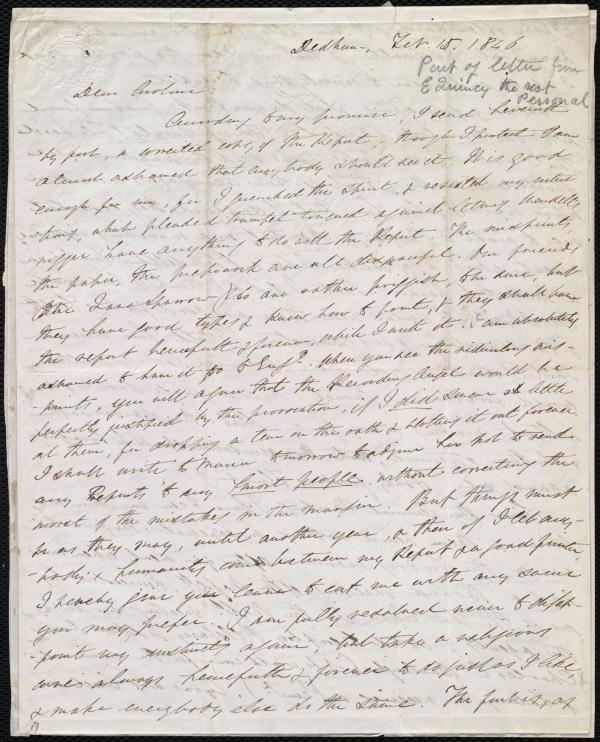 Dedham, Feb. 18. 1846.
Part of letter from
E Quincy the rest
Personal
Dear Caroline
According to my promise, I send herewith
by post, a corrected copy of the Report, – though I protest I am
almost ashamed that anybody should see it. It is good
enough for me, for I quenched the Spirit & resisted my interior
which pleaded trumpet tongued against letting
have anything to do with the Report. The misprints,
the paper, the presswork are all disgraceful. Our friends
are rather priggish, to be sure, but
they have good types & know how to print, & they shall have
the report henceforth & forever, while I write it. I am absolutely
ashamed to have it go to Engd. When you see the ridiculous mis-
-prints, you will agree that the Recording Angel would be
perfectly justified by the provocation, if I did swear a little
at them, for dropping a tear on the oath & blotting it out forever.
I shall write to Maria tomorrow to adjure her not to send
any Reports to any smart people, without correcting the
worst of the mistakes in the margin. But things must
be as they may, until another year, & then if I let any-
-body's humanity come between my Report & a good printer,
I hereby give you leave to eat me with any sauce
you may prefer. I am fully resolved never to disap-
-point my instincts again, but take a religious
care always henceforth & forever to do just as I like,
& make everybody else do the same. The fact is, as